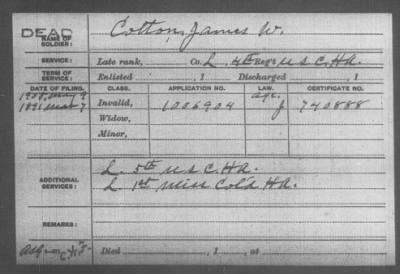 DEAD
NAME OF SOLDIER: Cotton, James W.
SERVICE: Late rank, Co. L, 4th Reg't U S C. H A.
TERM OF SERVICE: Enlisted , 1 Discharged , 1
DATE OF FILING. CLASS. APPLICATION NO. LAW. CERTIFICATE NO.
1908, May 9 age.
1891 Mar 7 Invalid, 1006904 J 740888
Widow,
Minor,
ADDITIONAL SERVICES: L. 5th U S C. H A.
L. 1st Miss Col'd H A.
REMARKS:
Died , 1 , at